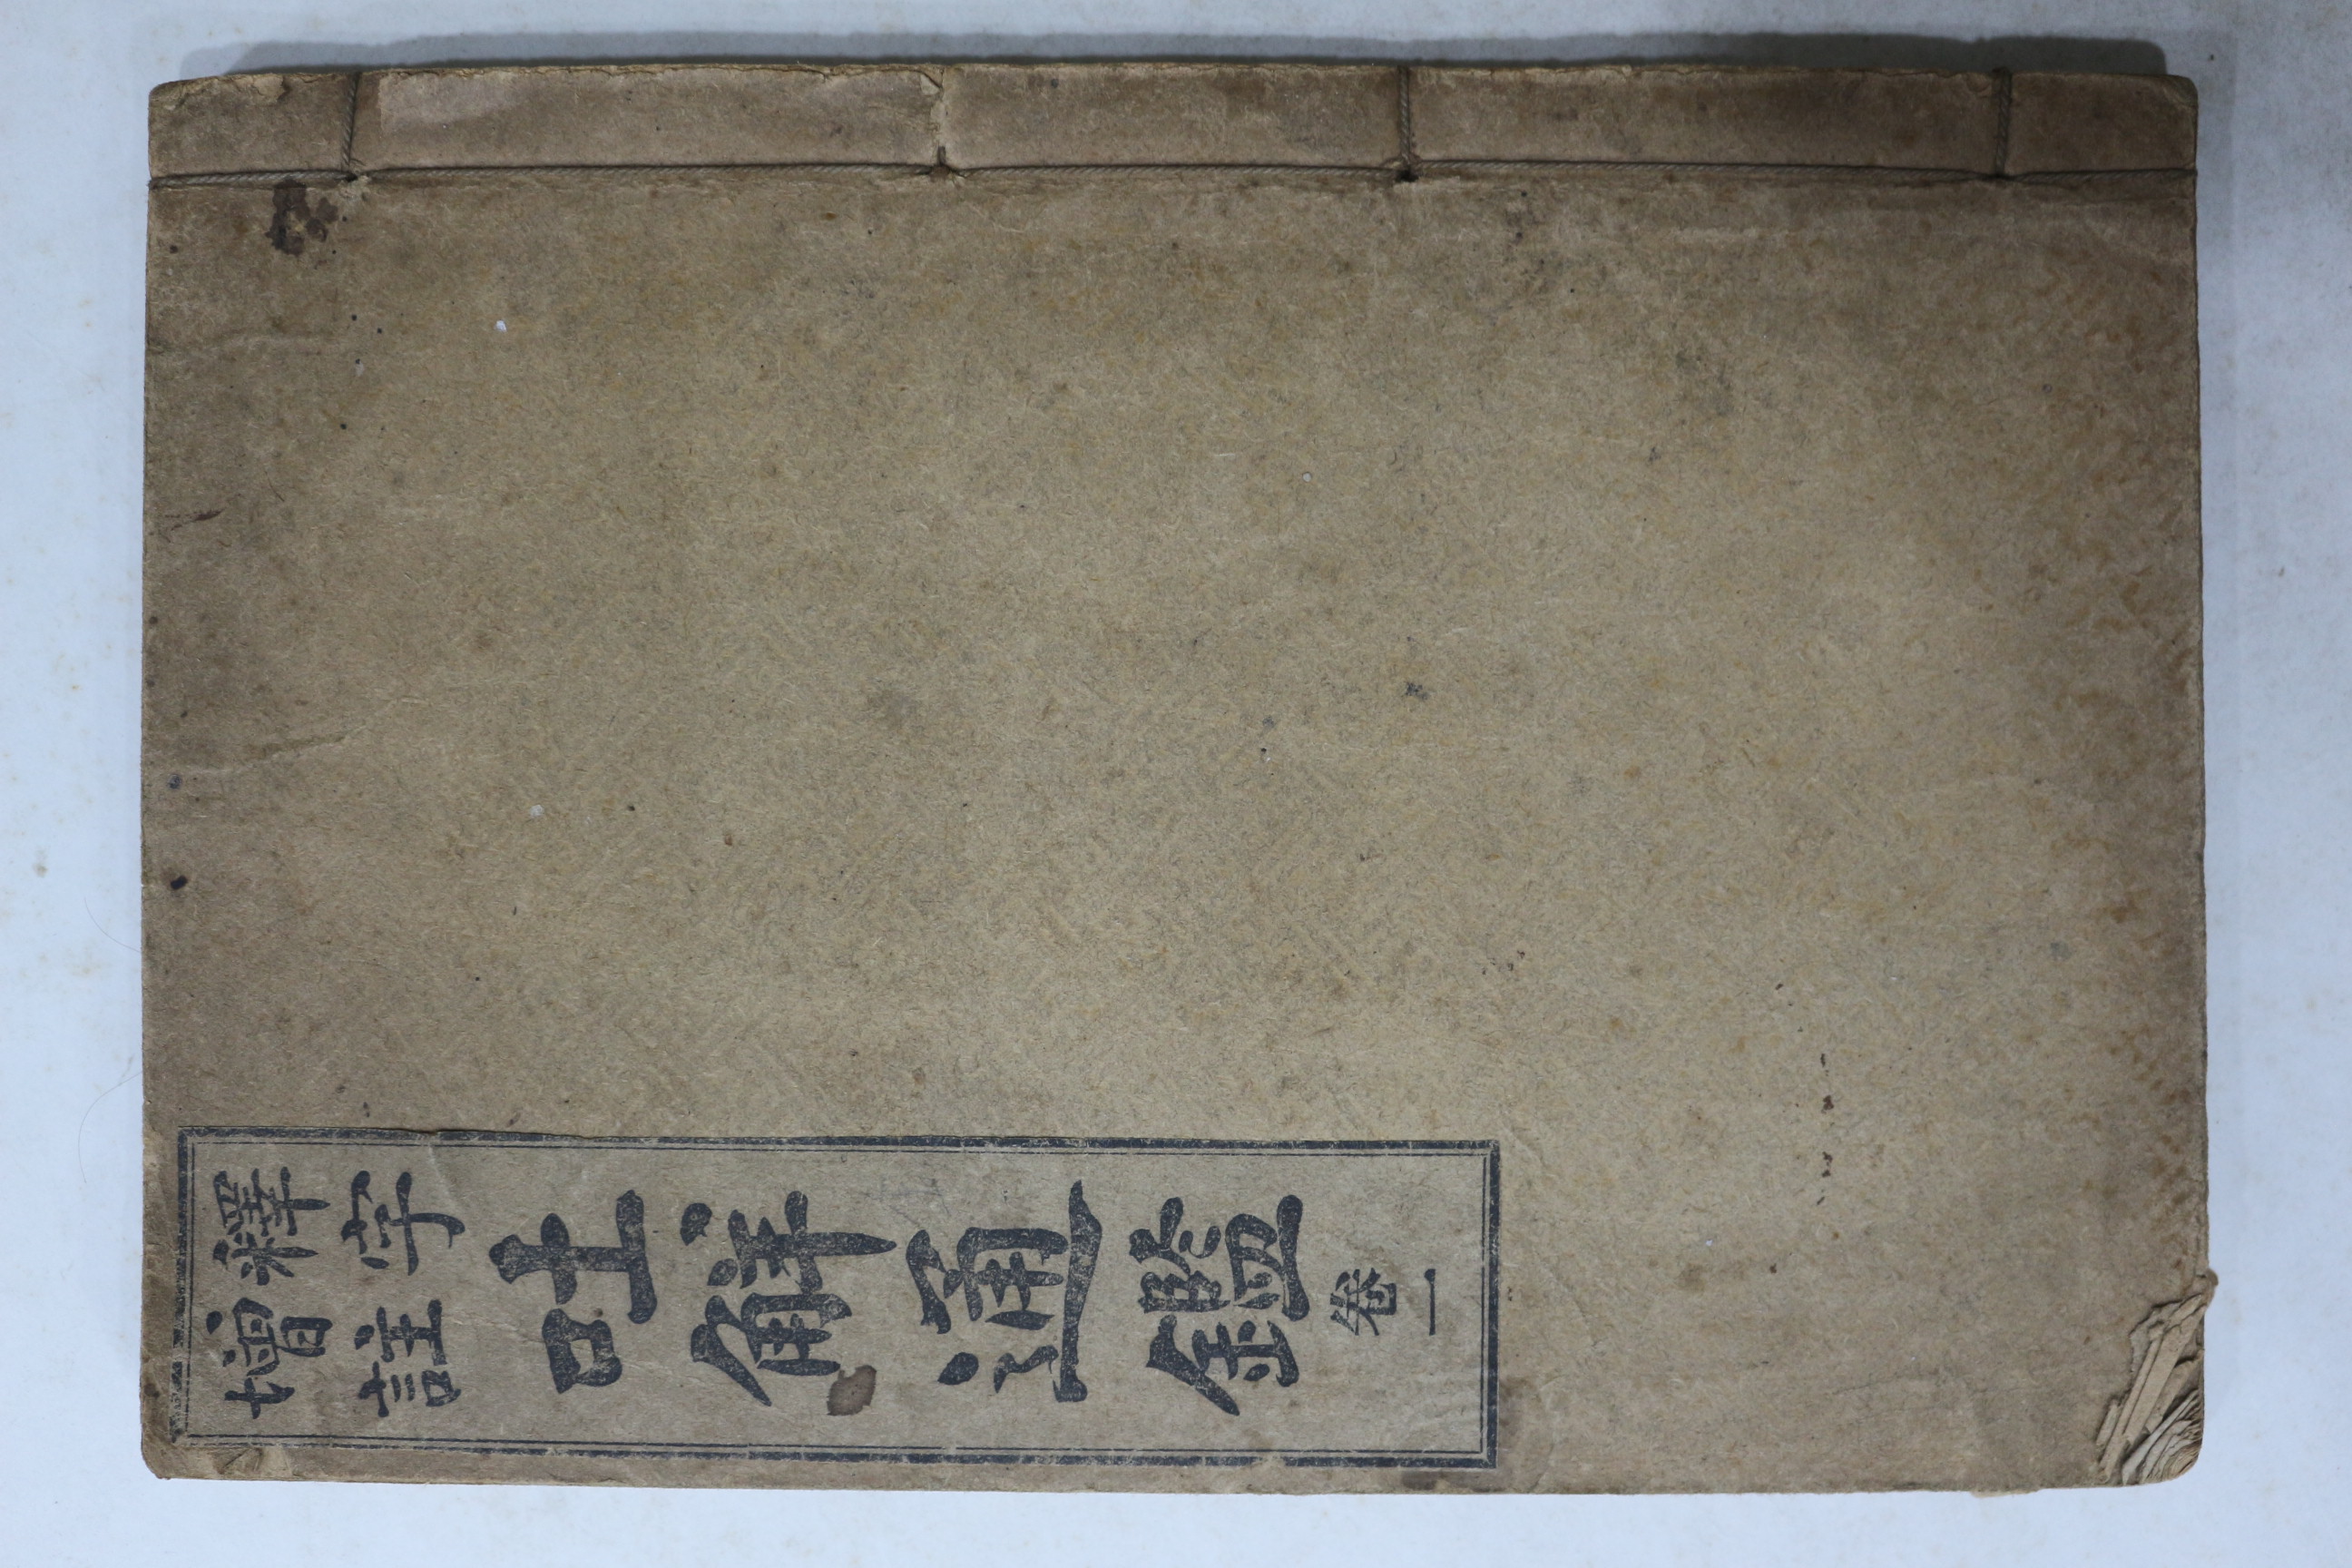 釋字
增註
吐觧通鑑
卷一